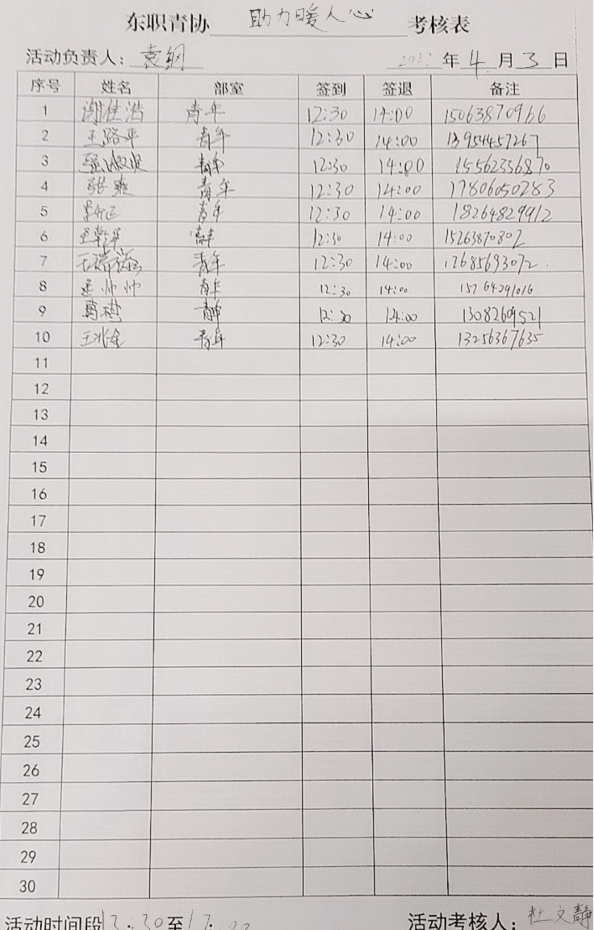 东职青协 助力暖人心 考核表
活动负责人: 袁钢 年 4 月 3 日
序号 姓名 部室 签到 签退 备注
1 谢佳浩 青年 12:30 14:00 15063870966
2 王路平 青年 12:30 14:00 13954457267
3 青年 12:30 14:00 15562356870
4 张爽 青年 12:30 14:00 17806050283
5 青年 12:30 14:00 18264829912
6 青年 12:30 14:00 15263870802
7 青年 12:30 14:00 17685693072
8 孟帅帅 青年 12:30 14:00 15764291016
9 青年 12:30 14:00 13082609521
10 王兆金 青年 12:30 14:00 13256367635
11
12
13
14
15
16
17
18
19
20
21
22
23
24
25
26
27
28
29
30
活动时间段 至 活动考核人: 杜文静